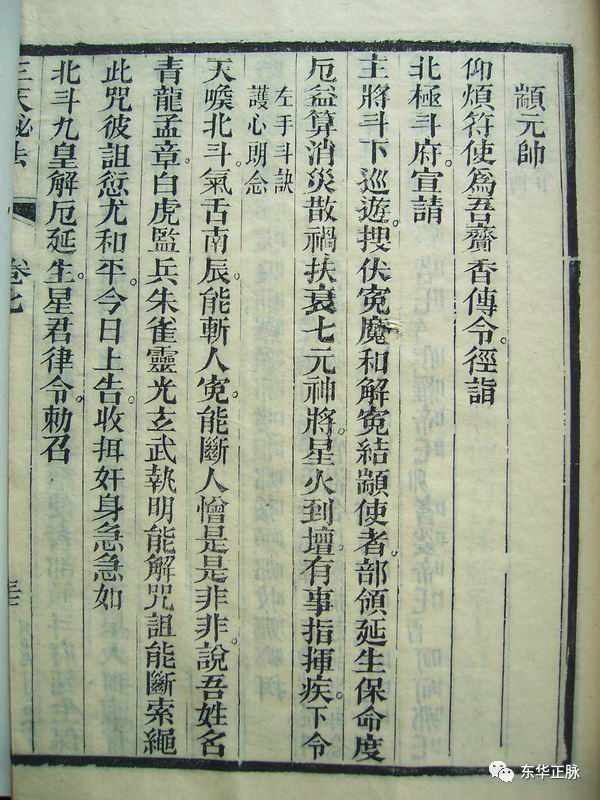 顓元帥
仰煩符使為吾賫香傳令徑詣
北極斗府宣請
主將斗下巡遊搜伏寃魔和解寃結顓使者部領延生保命度
厄益算消災散禍扶衰七元神將星火到壇有事指揮疾下令
左手斗訣
護心朗念
天喚北斗氣舌南辰能斬人寃能斷人憎是是非非說吾姓名
青龍孟章白虎監兵朱雀靈光玄武執明能解咒詛能斷索繩
此咒彼詛愆尤和平今日上告收捐奸身急急如
北斗九皇解厄延生星君律令勅召
三天秘法
卷七
三
东华正脉